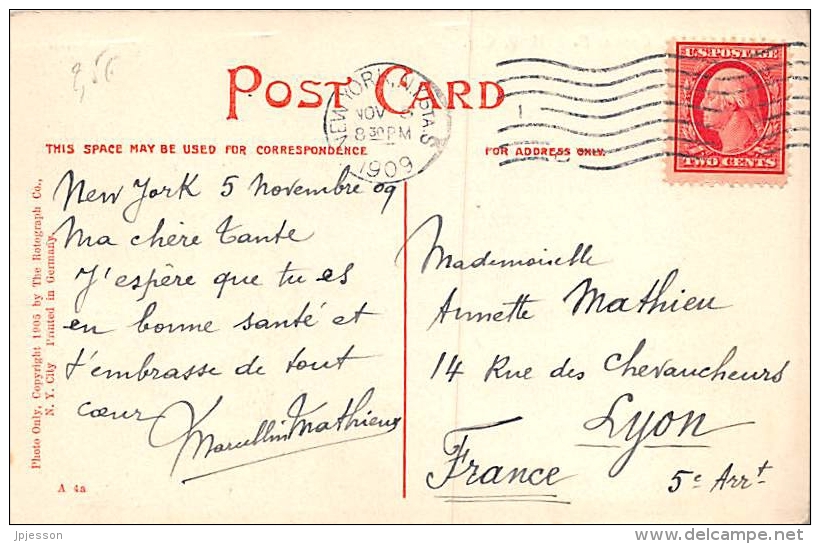 2,50
POST CARD
NEW YORK, N.Y. STA.
NOV 5
8 30 PM
1909
U.S. POSTAGE
TWO CENTS
THIS SPACE MAY BE USED FOR CORRESPONDENCE
FOR ADDRESS ONLY.
New York 5 Novembre 09
Ma chère Tante
J'espère que tu es
en bonne santé et
t'embrasse de tout
cœur Marcellin Mathieu
Mademoiselle
Annette Mathieu
14 Rue des Chevaucheurs
Lyon
France 5e Arrt
Photo Only, Copyright 1905 by The Rotograph Co.,
N. Y. City Printed in Germany.
A 4a
jpjesson
delcampe.net